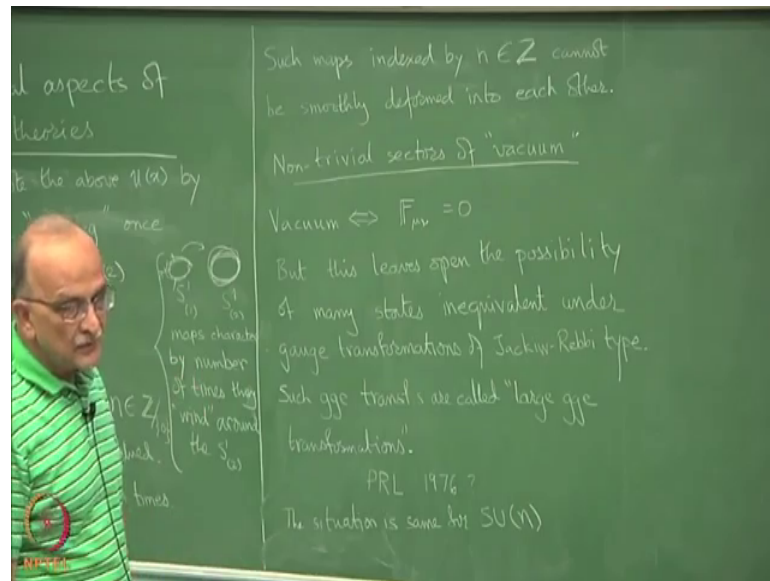 al aspects of
theories
the above U(x) by
once
S¹ S¹
(1) (2)
maps charact
by number
of times they
"wind" around
the S¹
(2)
n ∈ Z/
times.
Such maps indexed by n ∈ Z cannot
be smoothly deformed into each other.
Non-trivial sectors of "vacuum"
Vacuum ⇔ Fμν = 0
But this leaves open the possibility
of many states inequivalent under
gauge transformations of Jackiw-Rebbi type.
Such gge transf s are called "large gge
transformations".
PRL 1976 ?
The situation is same for SU(n)
NPTEL